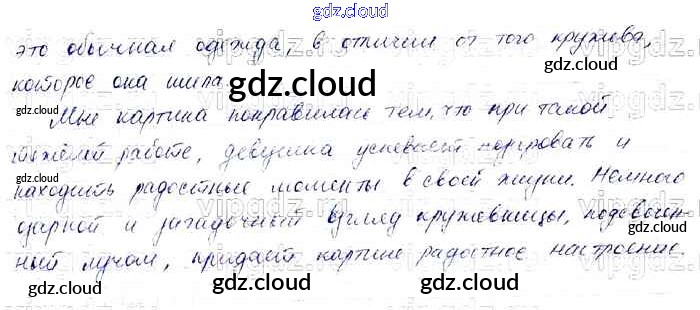 gdz.cloud
это обычная одежда, в отличии от того кружева,
которое она шила. gdz.cloud
gdz.cloud gdz.cloud
Мне картина понравилась тем, что при такой
тяжёлой работе, девушка успевает позировать и
gdz.cloud
находить радостные моменты в своей жизни. Немного
озорной и загадочный взгляд кружевницы, подсвечен-
ный лучом, придаёт картине радостное настроение.
gdz.cloud gdz.cloud gdz.cloud gdz.cloud